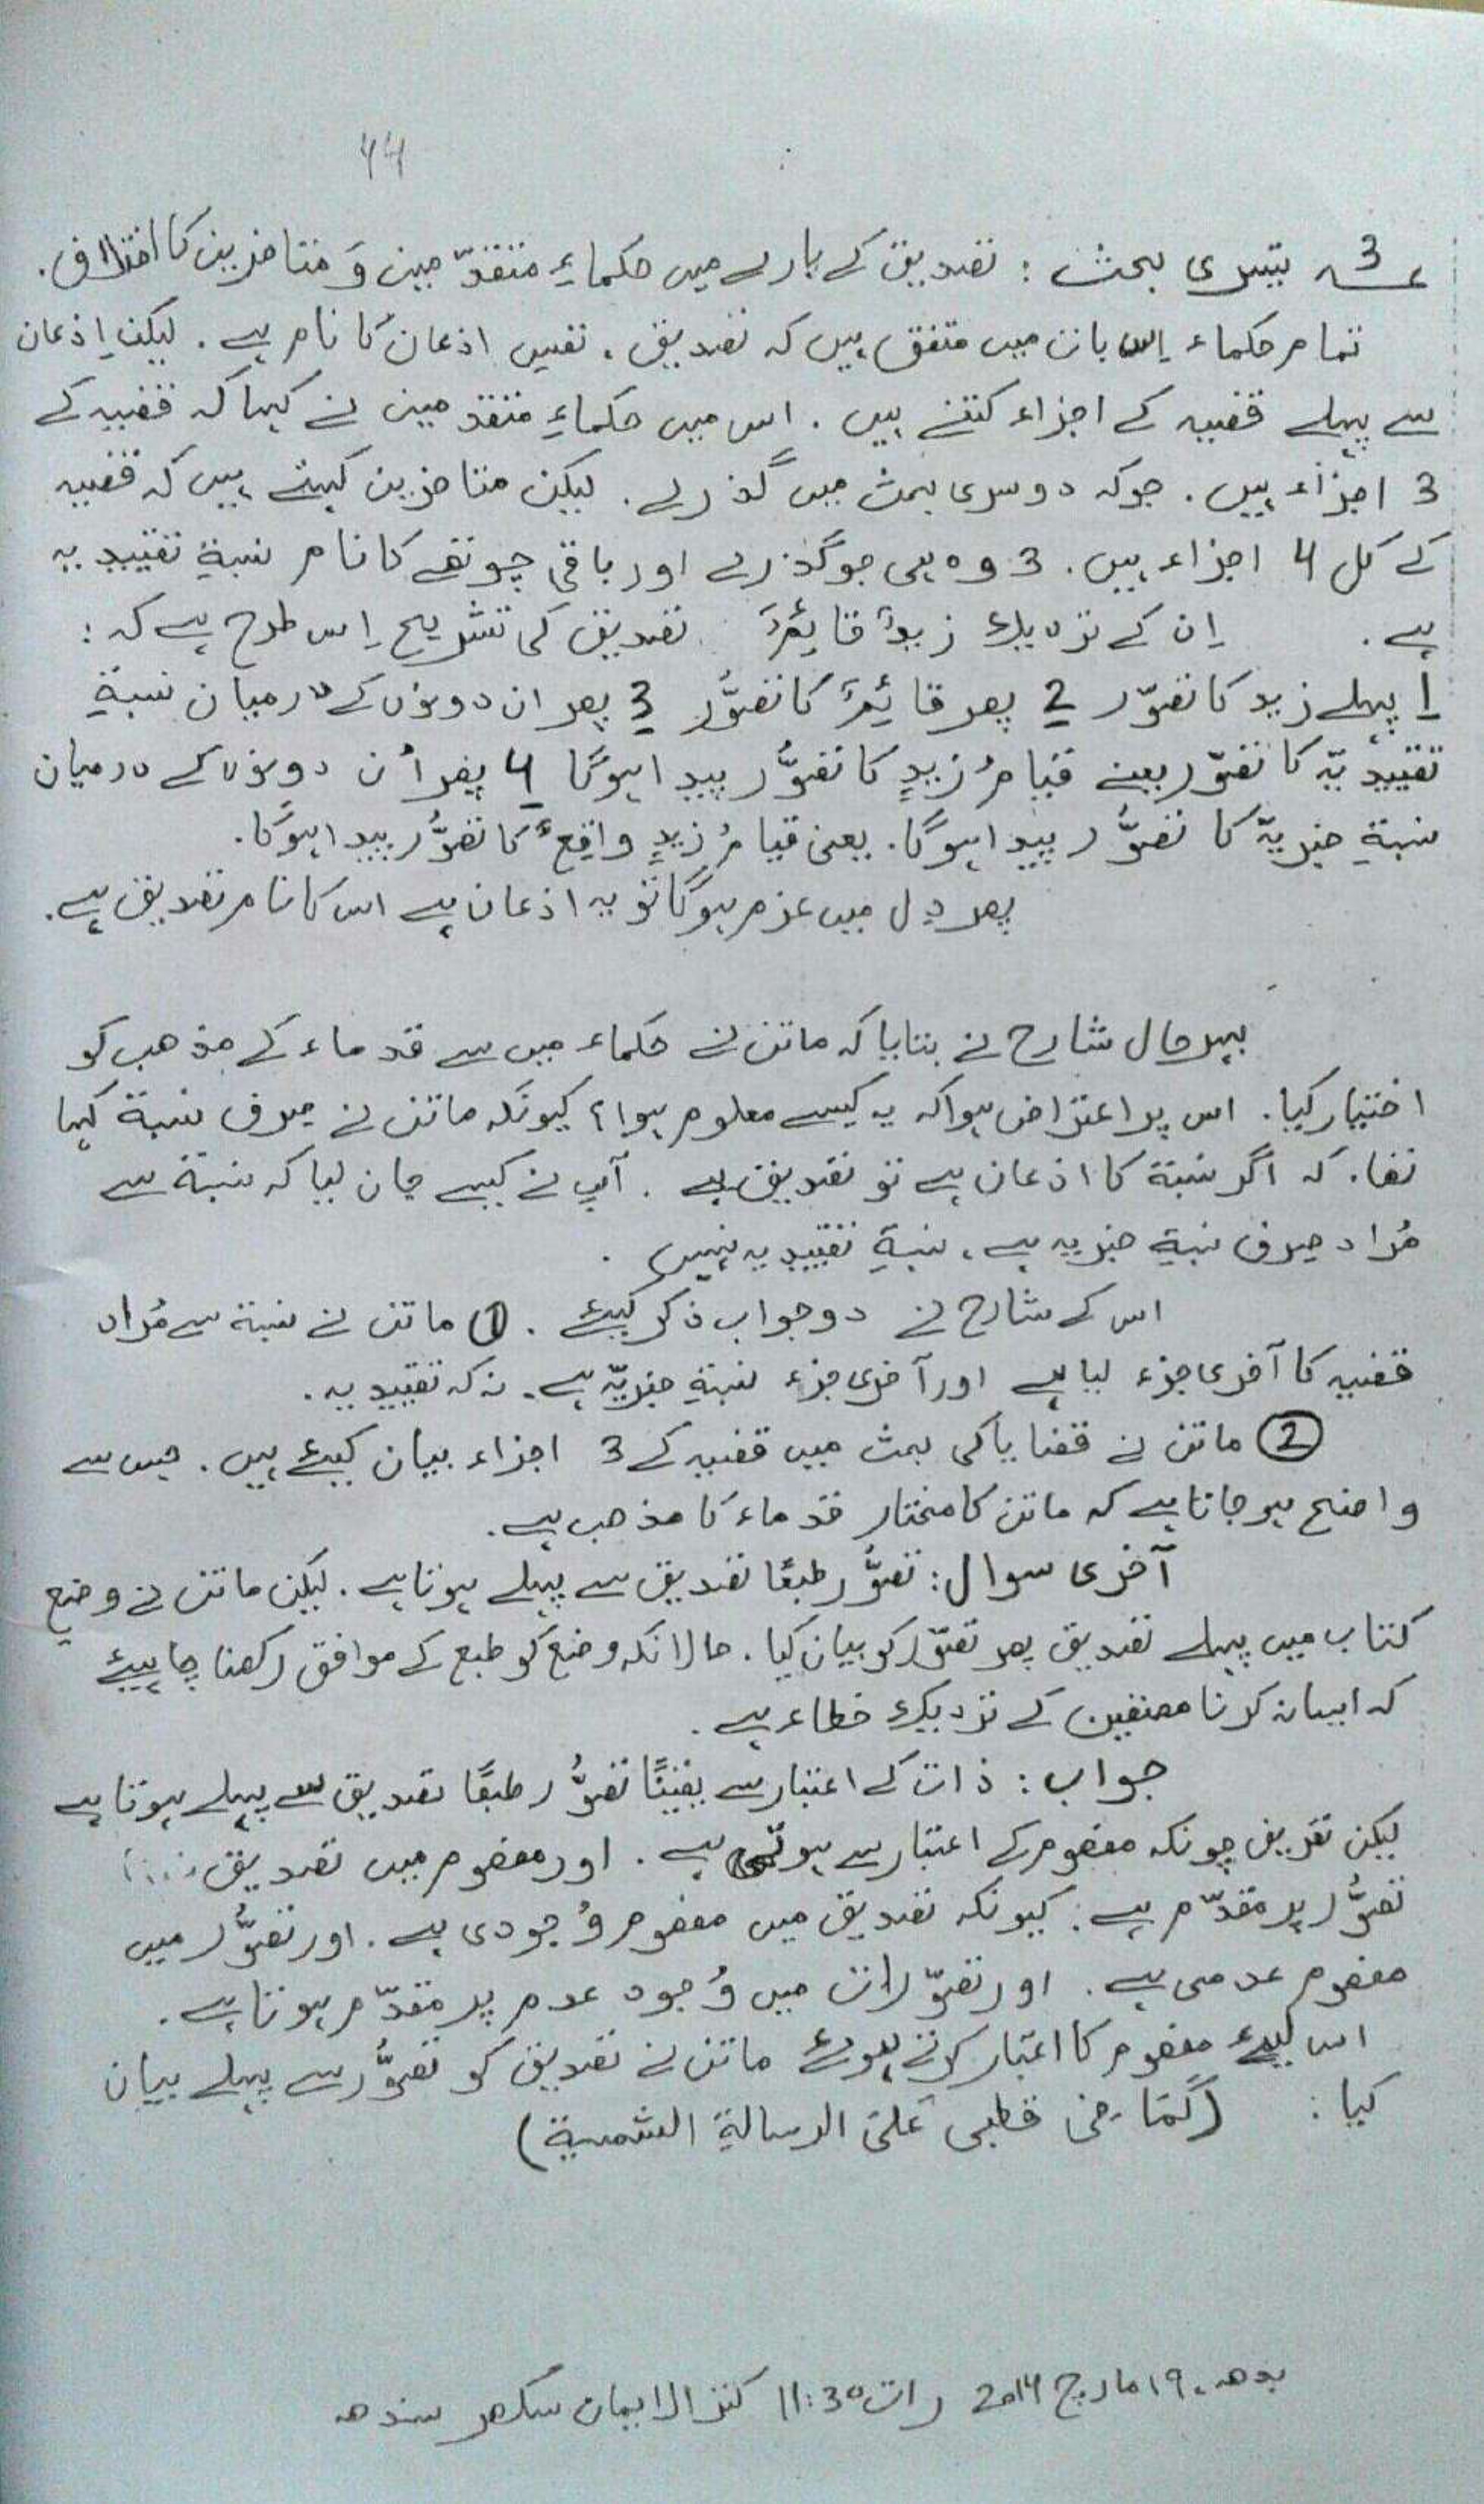 44
ع3ـہ تیسری بحث: تصدیق کے بارے میں حکماءِ متقدّمین وَ متاخرین کا اختلاف.
تمام حکماء اِس بات میں متفق ہیں کہ تصدیق، نفسِ اذعان کا نام ہے. لیکن اِذعان
سے پہلے قضیہ کے اجزاء کتنے ہیں. اس میں حکماءِ متقدمین نے کہا کہ قضیہ کے
3 اجزاء ہیں. جوکہ دوسری بحث میں گذرے. لیکن متاخرین کہتے ہیں کہ قضیہ
کے کل 4 اجزاء ہیں. 3 وہ ہی جو گذرے اور باقی چوتھے کا نام نسبةِ تقییدیہ
ہے. اِن کے نزدیک زیدٌ قائمٌ تصدیق کی تشریح اِس طرح ہے کہ:
1 پہلے زید کا تصوّر 2 پھر قائمٌ کا تصوُّر 3 پھر ان دونوں کے درمیان نسبةِ
تقییدیّہ کا تصوّر یعنے قیامُ زیدٍ کا تصوُّر پیدا ہوگا 4 پھر اُن دونوں کے درمیان
نسبةِ خبریّہ کا تصوُّر پیدا ہوگا. یعنی قیامُ زیدٍ واقِعٌ کا تصوُّر پیدا ہوگا.
پھر دِل میں عزم ہوگا تو یہ اذعان ہے اس کا نام تصدیق ہے.
بہرحال شارح نے بتایا کہ ماتن نے حکماء میں سے قدماء کے مذھب کو
اختیار کیا. اس پر اعتراض ہوا کہ یہ کیسے معلوم ہوا؟ کیونکہ ماتن نے صرف نسبة کہا
تھا. کہ اگر نسبة کا اذعان ہے تو تصدیق ہے. آپ نے کیسے جان لیا کہ نسبة سے
مُراد صرف نسبةِ خبریہ ہے، نسبةِ تقییدیہ نہیں.
اس کے شارح نے دو جواب ذکر کیئے. ① ماتن نے نسبة سے مُراد
قضیہ کا آخری جزء لیا ہے اور آخری جزء نسبةِ خبریّہ ہے. نہ کہ تقییدیہ.
② ماتن نے قضایا کی بحث میں قضیہ کے 3 اجزاء بیان کیئے ہیں. جس سے
واضح ہو جاتا ہے کہ ماتن کا مختار قدماء کا مذھب ہے.
آخری سوال: تصوُّر طبعًا تصدیق سے پہلے ہوتا ہے. لیکن ماتن نے وضعِ
کتاب میں پہلے تصدیق پھر تصوّر کو بیان کیا. حالانکہ وضع کو طبع کے موافق رکھنا چاہیئے
کہ ایسا نہ کرنا مصنفین کے نزدیک خطاء ہے.
جواب: ذات کے اعتبار سے یقینًا تصوُّر طبعًا تصدیق سے پہلے ہوتا ہے
لیکن تعریف چونکہ مفھوم کے اعتبار سے ہوتی ہے. اور مفھوم میں تصدیق
تصوُّر پر مقدّم ہے: کیونکہ تصدیق میں مفھوم وُجودی ہے. اور تصوُّر میں
مفھوم عدمی ہے. اور تصوّرات میں وُجود عدم پر مقدّم ہوتا ہے.
اس لیئے مفھوم کا اعتبار کرتے ہوئے ماتن نے تصدیق کو تصوُّر سے پہلے بیان
کیا: (کَمَا فی قطبی عَلیٰ الرسالةِ الشمسیة)
بدھ، ۱۹ مارچ 2014 رات 11:30 کنز الایمان سکھر سندھ